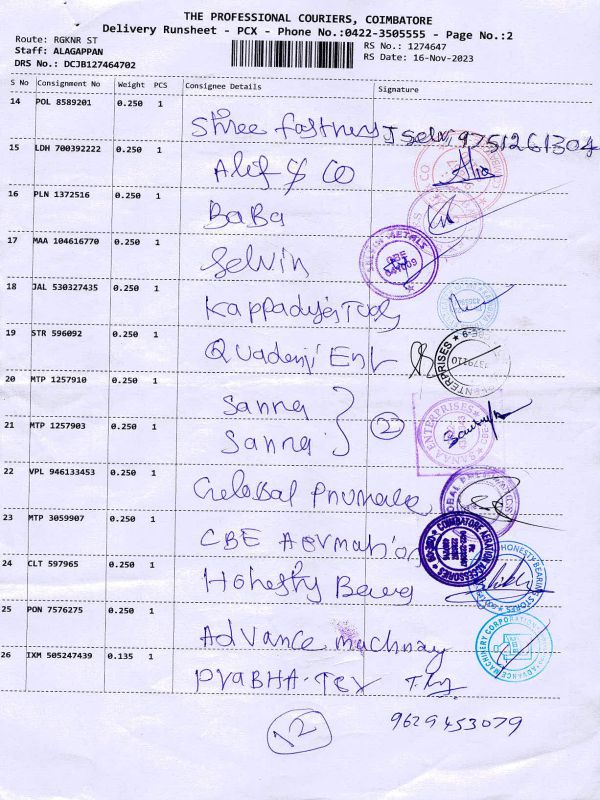 THE PROFESSIONAL COURIERS, COIMBATORE
Delivery Runsheet - PCX - Phone No.:0422-3505555 - Page No.:2
Route: RGKNR ST
RS No.: 1274647
Staff: ALAGAPPAN
RS Date: 16-Nov-2023
DRS No.: DCJB127464702
S No Consignment No Weight PCS Consignee Details Signature
14 POL 8589201 0.250 1
Shree fastners J Selvi, 9751261304
15 LDH 700392222 0.250 1
Alif & Co
16 PLN 1372516 0.250 1
BaBa
17 MAA 104616770 0.250 1
Selvin
SELVIN METALS
18 JAL 530327435 0.250 1
Kappadyes Tools
19 STR 596092 0.250 1
Ent
ENTERPRISES
20 MTP 1257910 0.250 1
Sanna
21 MTP 1257903 0.250 1
Sanna
2
SANAA ENTERPRISES
22 VPL 946133453 0.250 1
23 MTP 3059907 0.250 1
CBE
COIMBATORE AERATION ACCESSORES
24 CLT 597965 0.250 1
Honesty
HONESTY BEARING STORES
25 PON 7576275 0.250 1
Advance
ADVANCE MACHINERY CORPORATION
26 IXM 505247439 0.135 1
PraBHA-Tex
12
9629453079